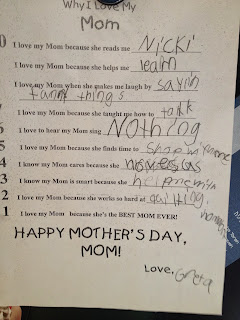 Why I Love My
Mom
0 I love my Mom because she reads me Nicki
I love my Mom because she helps me learn
I love my Mom when she makes me laugh by sayin
funny things
7 I love my Mom because she taught me how to talk
6 I love to hear my Mom sing Nothing
5 I love my Mom because she finds time to Shop wif me
4 I know my Mom cares because she
3 I know my Mom is smart because she help me with
2 I love my Mom because she works so hard at quilting
1 I love my Mom because she's the BEST MOM EVER!
HAPPY MOTHER'S DAY,
MOM!
Love, Greta